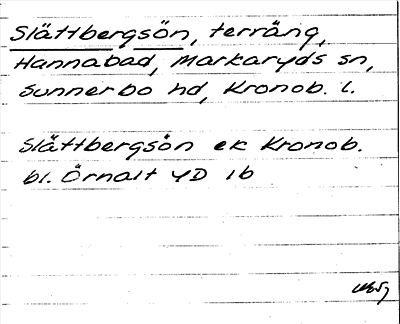 Slättbergsön, terräng,
Hannabad, Markaryds sn,
Sunnerbo hd, Kronob. l.
Slättbergsön ek Kronob.
bl. Örnalt 4D 1b